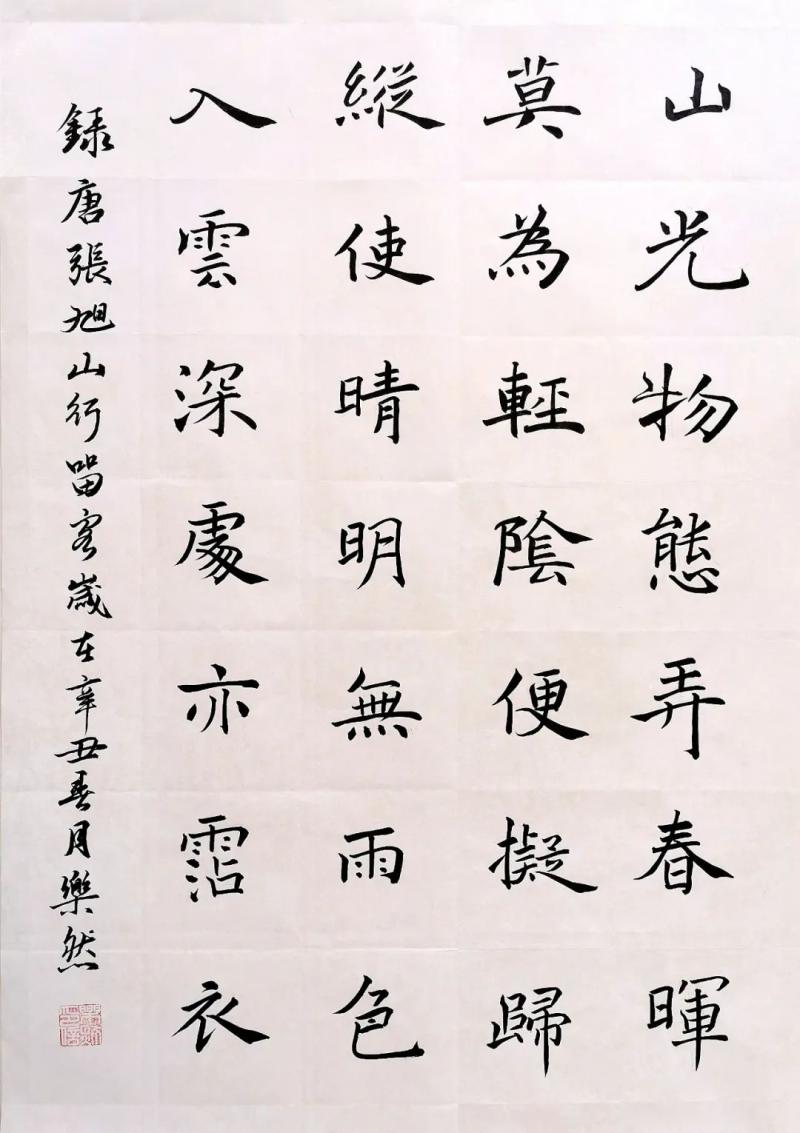 山光物態弄春暉
莫為輕陰便擬歸
縱使晴明無雨色
入雲深處亦霑衣
録唐張旭山行留客歲在辛丑春月樂然